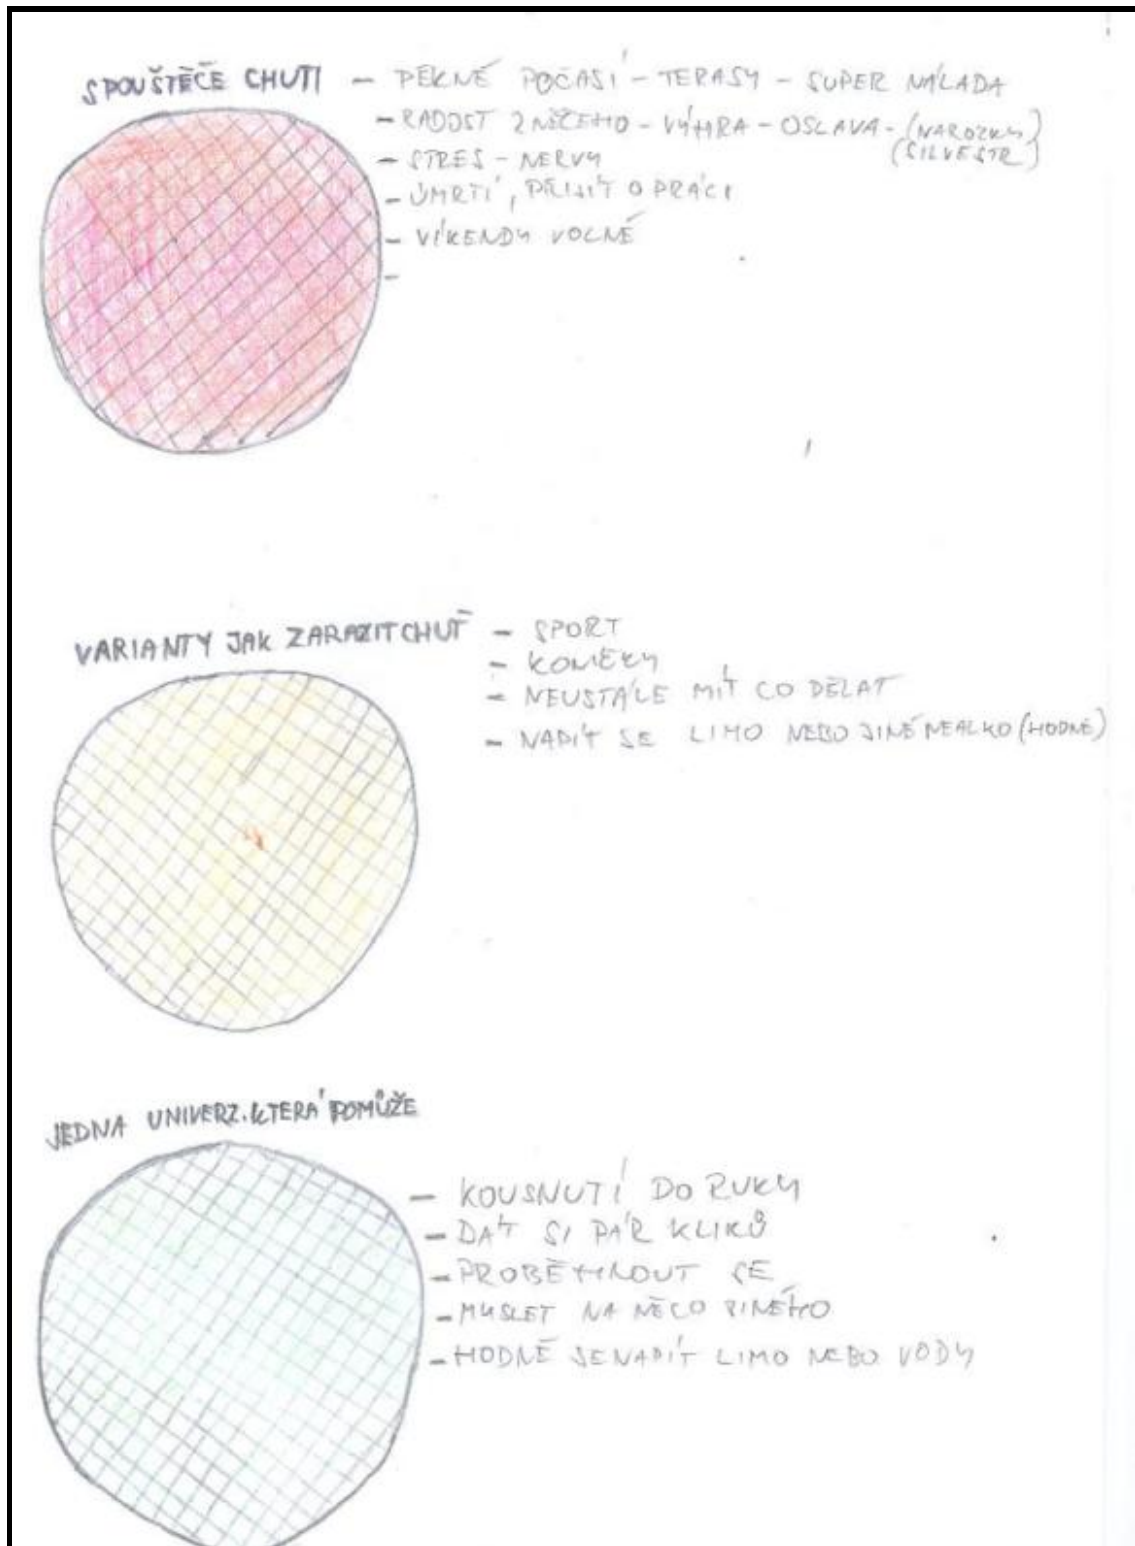 SPOUŠTĚČE CHUTI – PĚKNÉ POČASÍ – TERASY – SUPER NÁLADA
– RADOST Z NĚČEHO – VÝHRA – OSLAVA – (NAROZKY)
(SILVESTR)
– STRES – NERVY
– ÚMRTÍ, PŘIJÍT O PRÁCI
– VÍKENDY VOLNÉ
–
VARIANTY JAK ZARAZIT CHUŤ – SPORT
– KONÍČKY
– NEUSTÁLE MÍT CO DĚLAT
– NAPÍT SE LIMO NEBO JINÉ NEALKO (HODNĚ)
JEDNA UNIVERZ. KTERÁ POMŮŽE
– KOUSNUTÍ DO RUKY
– DAT SI PÁR KLIKŮ
– PROBĚHNOUT SE
– MYSLET NA NĚCO JINÉHO
– HODNĚ SE NAPÍT LIMO NEBO VODY